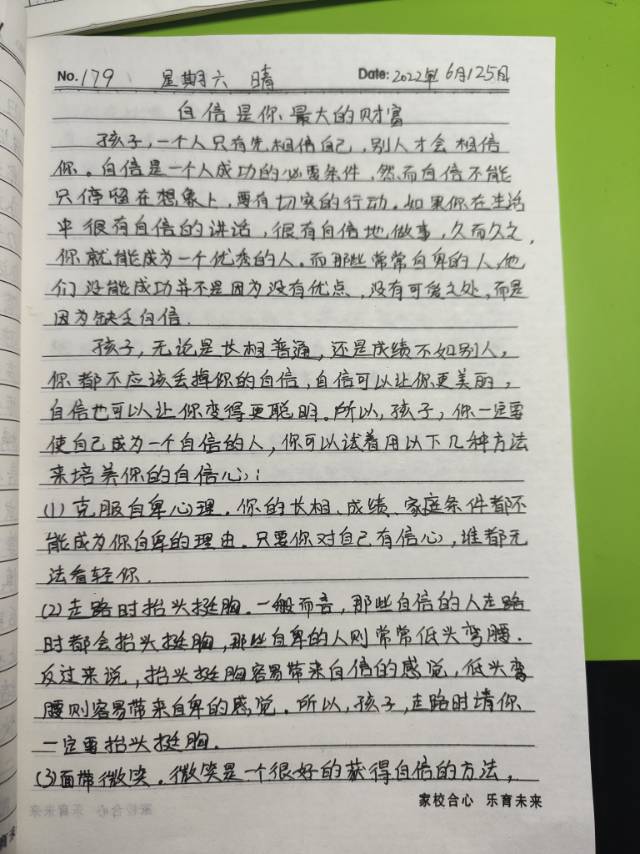 No. 179 星期六 晴 Date: 2022年6月25日
自信是你最大的财富
孩子,一个人只有先相信自己,别人才会相信
你。自信是一个人成功的必要条件,然而自信不能
只停留在想象上,要有切实的行动。如果你在生活
中很有自信的讲话,很有自信地做事,久而久之,
你就能成为一个优秀的人。而那些常常自卑的人,他
们没能成功并不是因为没有优点,没有可爱之处,而是
因为缺乏自信.
孩子,无论是长相普通,还是成绩不如别人,
你都不应该丢掉你的自信,自信可以让你更美丽,
自信也可以让你变得更聪明。所以,孩子,你一定要
使自己成为一个自信的人,你可以试着用以下几种方法
来培养你的自信心:
(1)克服自卑心理.你的长相、成绩、家庭条件都不
能成为你自卑的理由.只要你对自己有信心,谁都无
法看轻你.
(2)走路时抬头挺胸.一般而言,那些自信的人走路
时都会抬头挺胸,那些自卑的人则常常低头弯腰.
反过来说,抬头挺胸容易带来自信的感觉,低头弯
腰则容易带来自卑的感觉.所以,孩子,走路时请你
一定要抬头挺胸.
(3)面带微笑.微笑是一个很好的获得自信的方法,
家校合心 乐育未来